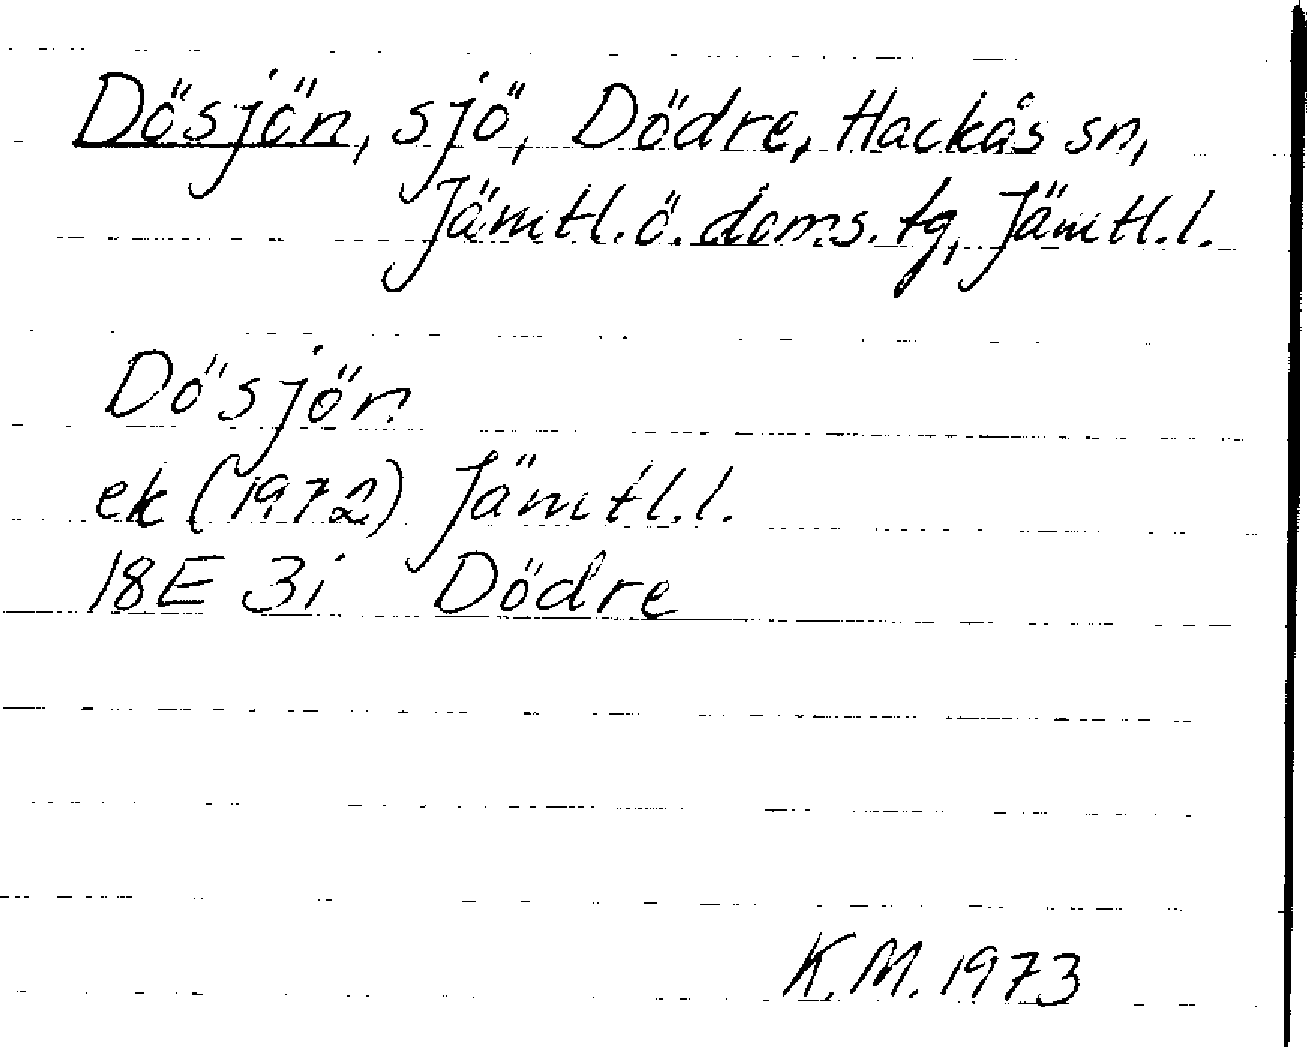 Dösjön, sjö, Dödre, Hackås sn,
Jämtl. ö. doms. tg, Jämtl. l.
Dösjön
ek (1972) Jämtl. l.
18E 3i Dödre
K. M. 1973